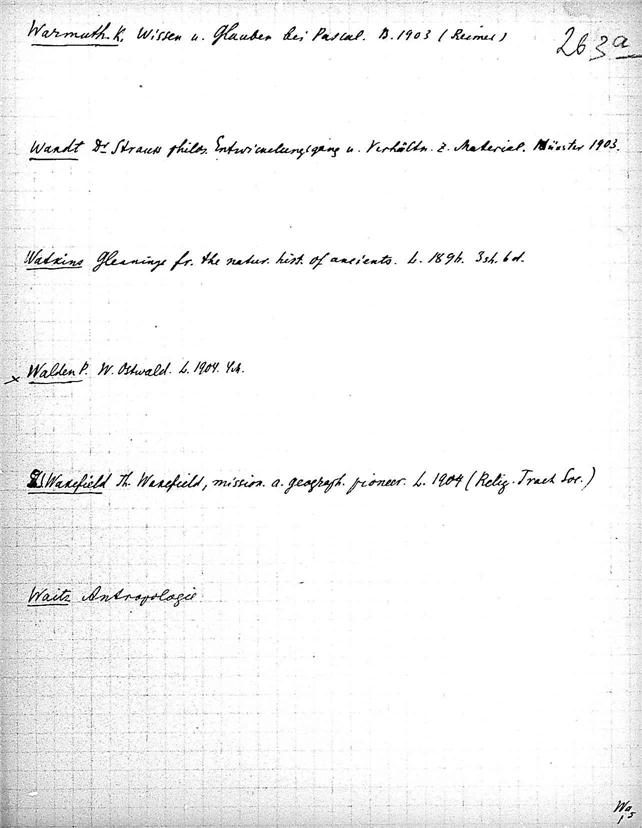 Warmuth. K. Wissen u. Glauben bei Pascal. B. 1903 (Reimer)
263a
Wandt D. Strauss philos. Entwickelungsgang u. Verhältn. z. Material. Münster 1903.
Watkins Gleanings fr. the natur. hist. of ancients. L. 1896. 3sh. 6d.
× Walden P. W. Ostwald. L. 1904. 4M.
Wakefield Th. Wakefield, mission. a. geograph. pioneer. L. 1904 (Relig. Tract Soc.)
Waitz Antropologie
Wa